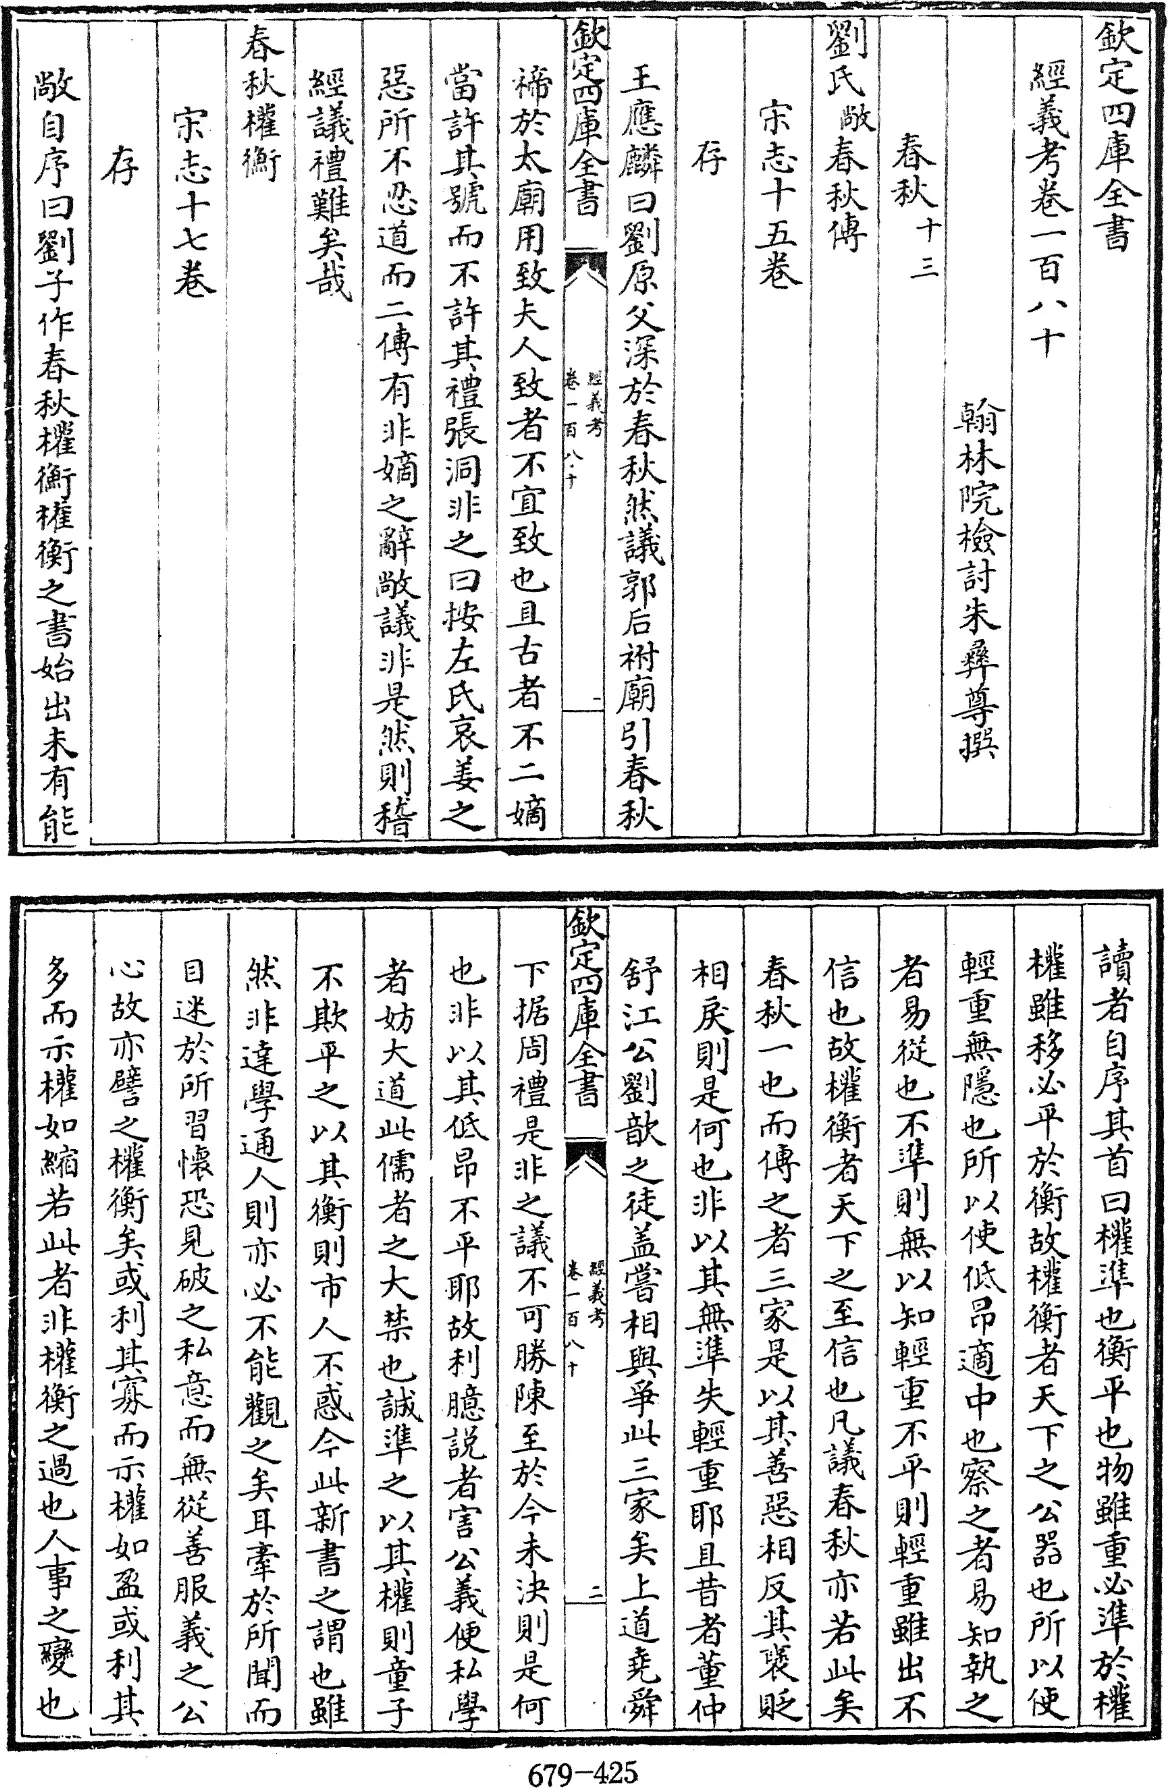 欽定四庫全書
經義考卷一百八十
翰林院檢討朱彞尊撰
春秋十三
劉氏敞春秋傳
宋志十五卷
存
王應麟曰劉原父深於春秋然議郭后祔廟引春秋
欽定四庫全書
經義考
卷一百八十
一
禘於太廟用致夫人致者不宜致也且古者不二嫡
當許其號而不許其禮張洞非之曰按左氏哀姜之
惡所不忍道而二傳有非嫡之辭敞議非是然則稽
經議禮難矣哉
春秋權衡
宋志十七卷
存
敞自序曰劉子作春秋權衡權衡之書始出未有能
讀者自序其首曰權準也衡平也物雖重必準於權
權雖移必平於衡故權衡者天下之公器也所以使
輕重無隱也所以使低昂適中也察之者易知執之
者易從也不準則無以知輕重不平則輕重雖出不
信也故權衡者天下之至信也凡議春秋亦若此矣
春秋一也而傳之者三家是以其善惡相反其襃貶
相戾則是何也非以其無準失輕重耶且昔者董仲
舒江公劉歆之徒盖嘗相與爭此三家矣上道堯舜
欽定四庫全書
經義考
卷一百八十
二
下据周禮是非之議不可勝陳至於今未決則是何
也非以其低昂不平耶故利臆説者害公義便私學
者妨大道此儒者之大禁也誠準之以其權則童子
不欺平之以其衡則市人不惑今此新書之謂也雖
然非達學通人則亦必不能觀之矣耳牽於所聞而
目迷於所習懷恐見破之私意而無從善服義之公
心故亦譬之權衡矣或利其寡而示權如盈或利其
多而示權如縮若此者非權衡之過也人事之變也
679-425